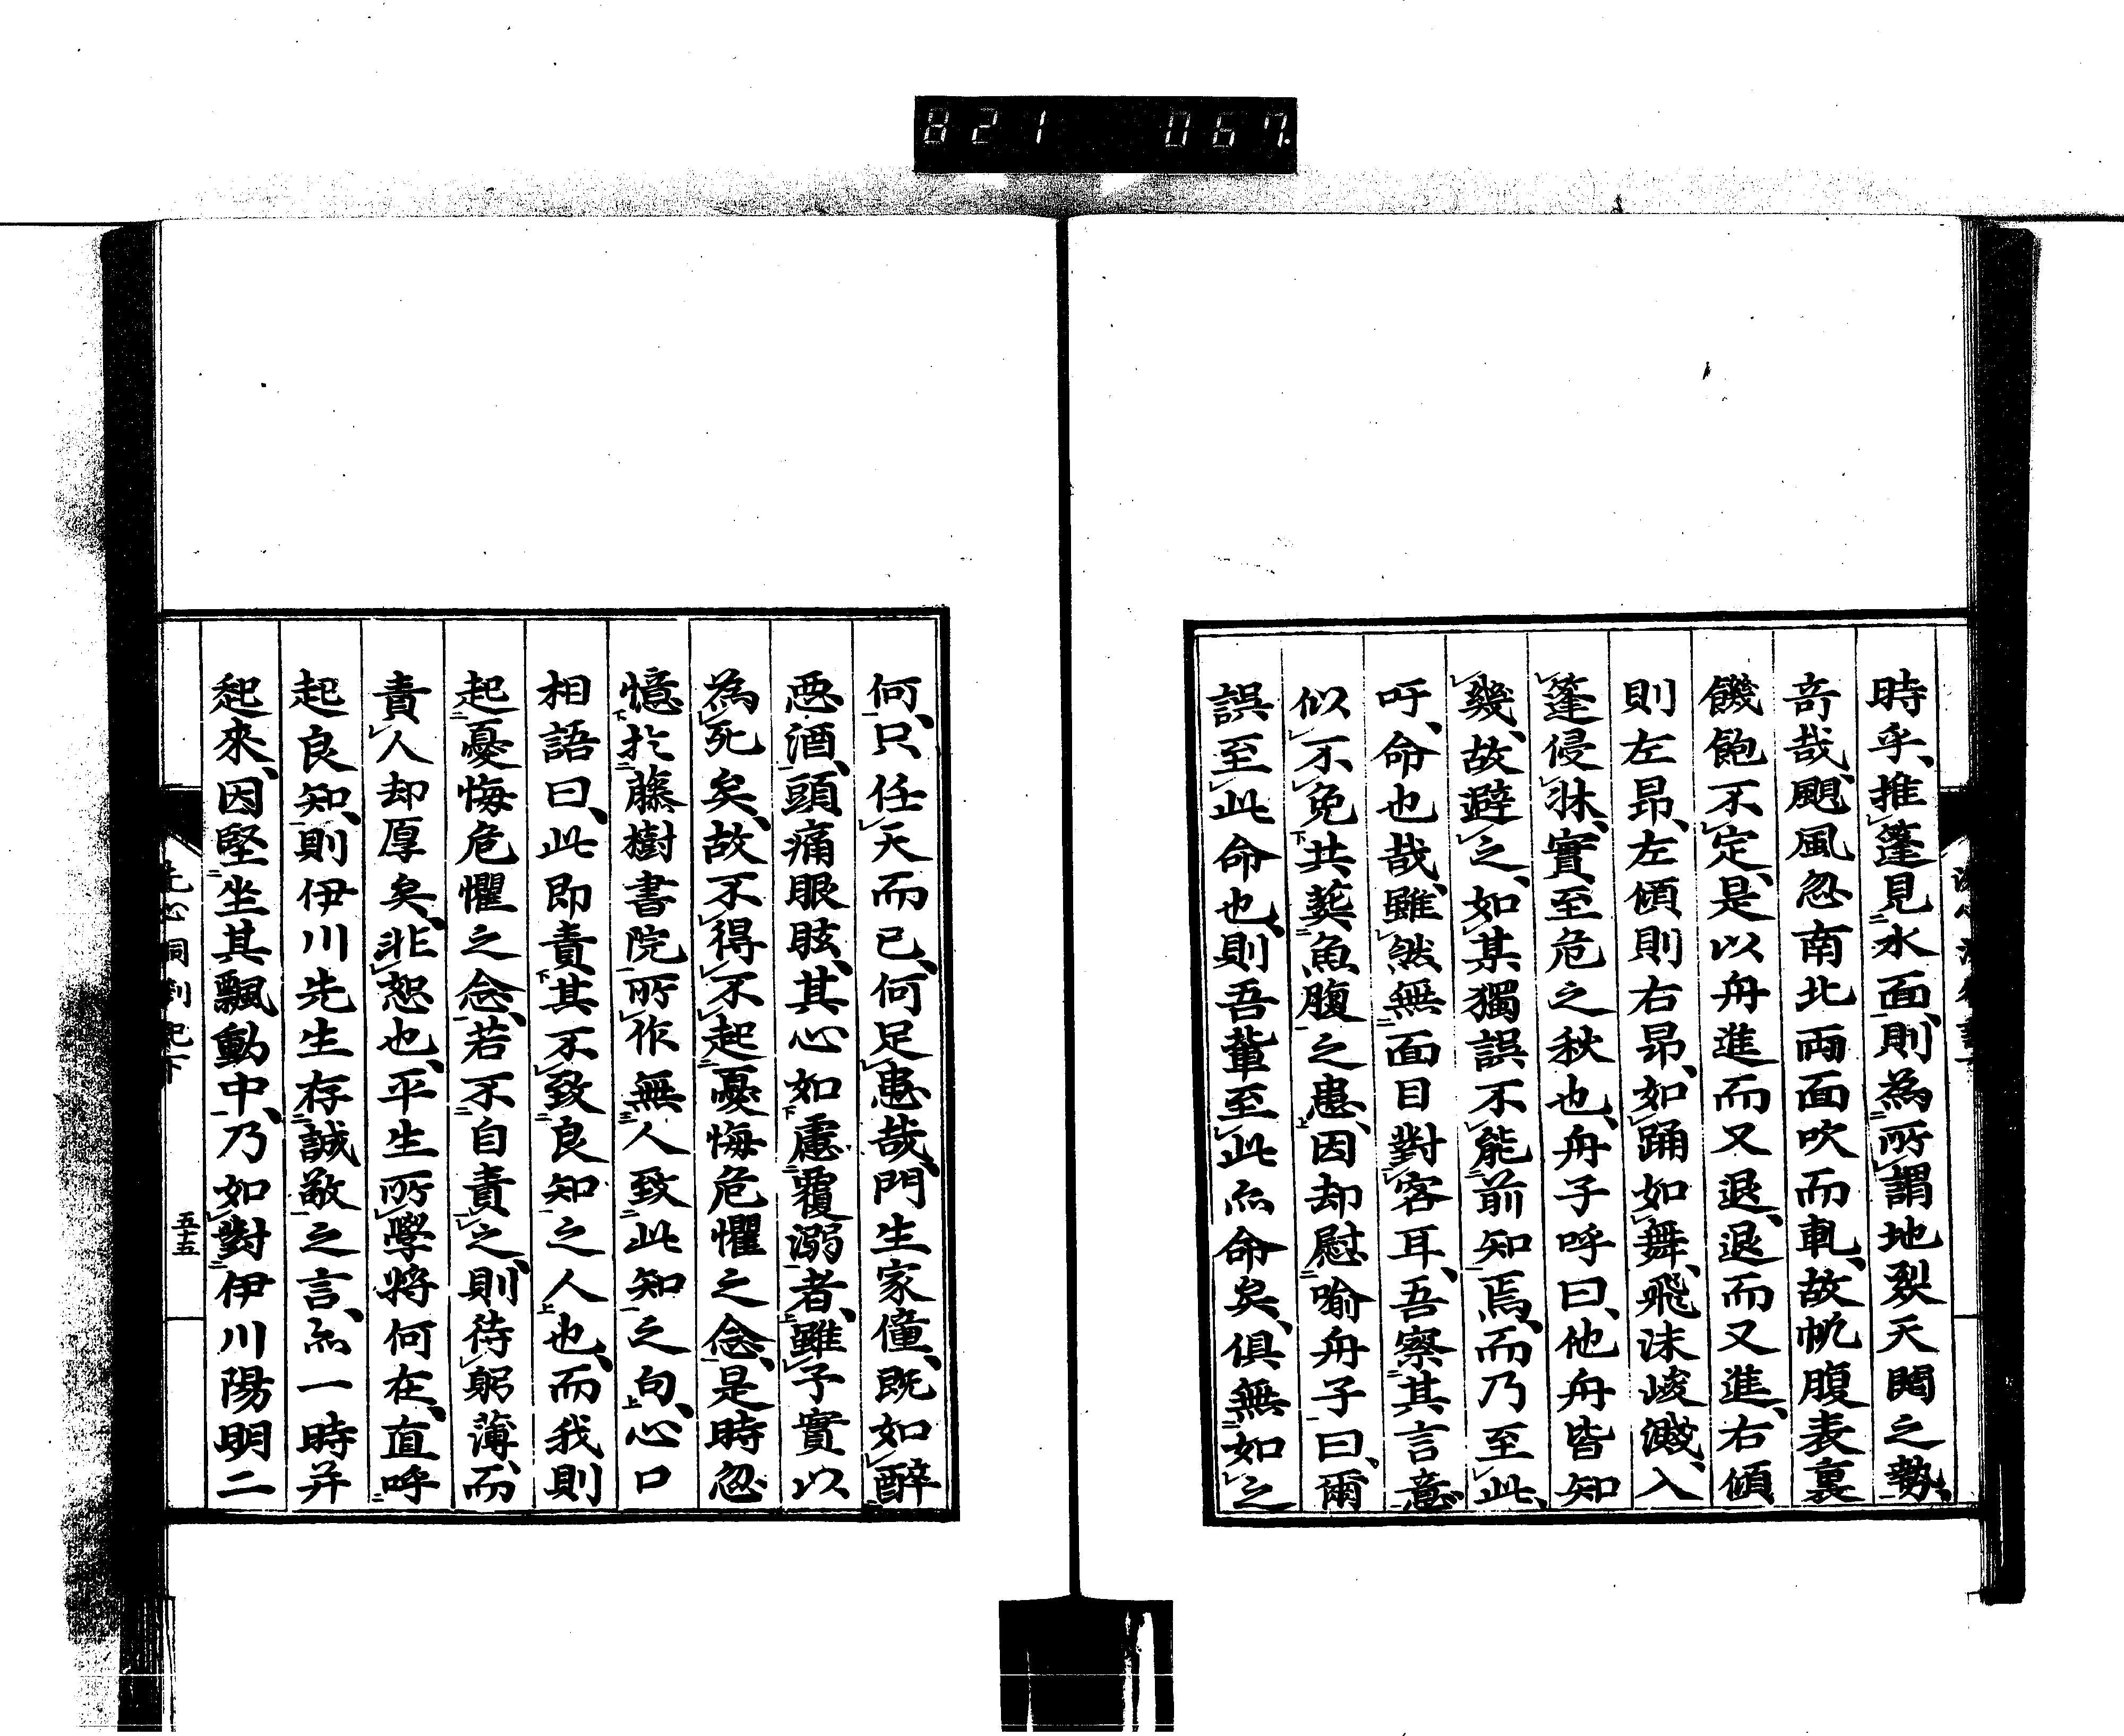 821 067.
時乎、推篷見水面、則為所謂地裂天開之勢、
奇哉、颶風忽南北両面吹而軋、故帆腹表裏
饑飽不定、是以舟進而又退、退而又進、右傾
則左昂、左傾則右昂、如踊如舞、飛沫峻濺、入
篷侵牀、實至危之秋也、舟子呼曰、他舟皆知
幾、故避之、如某獨誤不能前知焉、而乃至此、
吁、命也哉、雖然無面目對客耳、吾察其言意、
似不免共葬魚腹之患、因却慰喻舟子曰、爾
誤至此命也、則吾輩至此亦命矣、俱無如之
何、只任天而已、何足患哉、門生家僮、既如醉
惡酒、頭痛眼眩、其心如慮覆溺者、雖予實以
為死矣、故不得不起憂悔危懼之念、是時忽
憶於藤樹書院所作無人致此知之句、心口
相語曰、此即責其不致良知之人也、而我則
起憂悔危懼之念、若不自責之、則待躬薄、而
責人却厚矣、非恕也、平生所學將何在、直呼
起良知、則伊川先生存誠敬之言、亦一時并
起來、因堅坐其飄動中、乃如對伊川陽明二
洗心洞劄記下
五十五